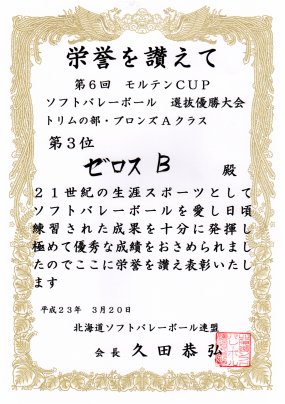 栄誉を讃えて
第6回　モルテンCUP
ソフトバレーボール　選抜優勝大会
トリムの部・ブロンズAクラス
第3位
ゼロスB　殿
21世紀の生涯スポーツとして
ソフトバレーボールを愛し日頃
練習された成果を十分に発揮し
極めて優秀な成績をおさめられまし
たのでここに栄誉を讃え表彰いたし
ます
平成23年　3月20日
北海道ソフトバレーボール連盟
会長　久田恭弘